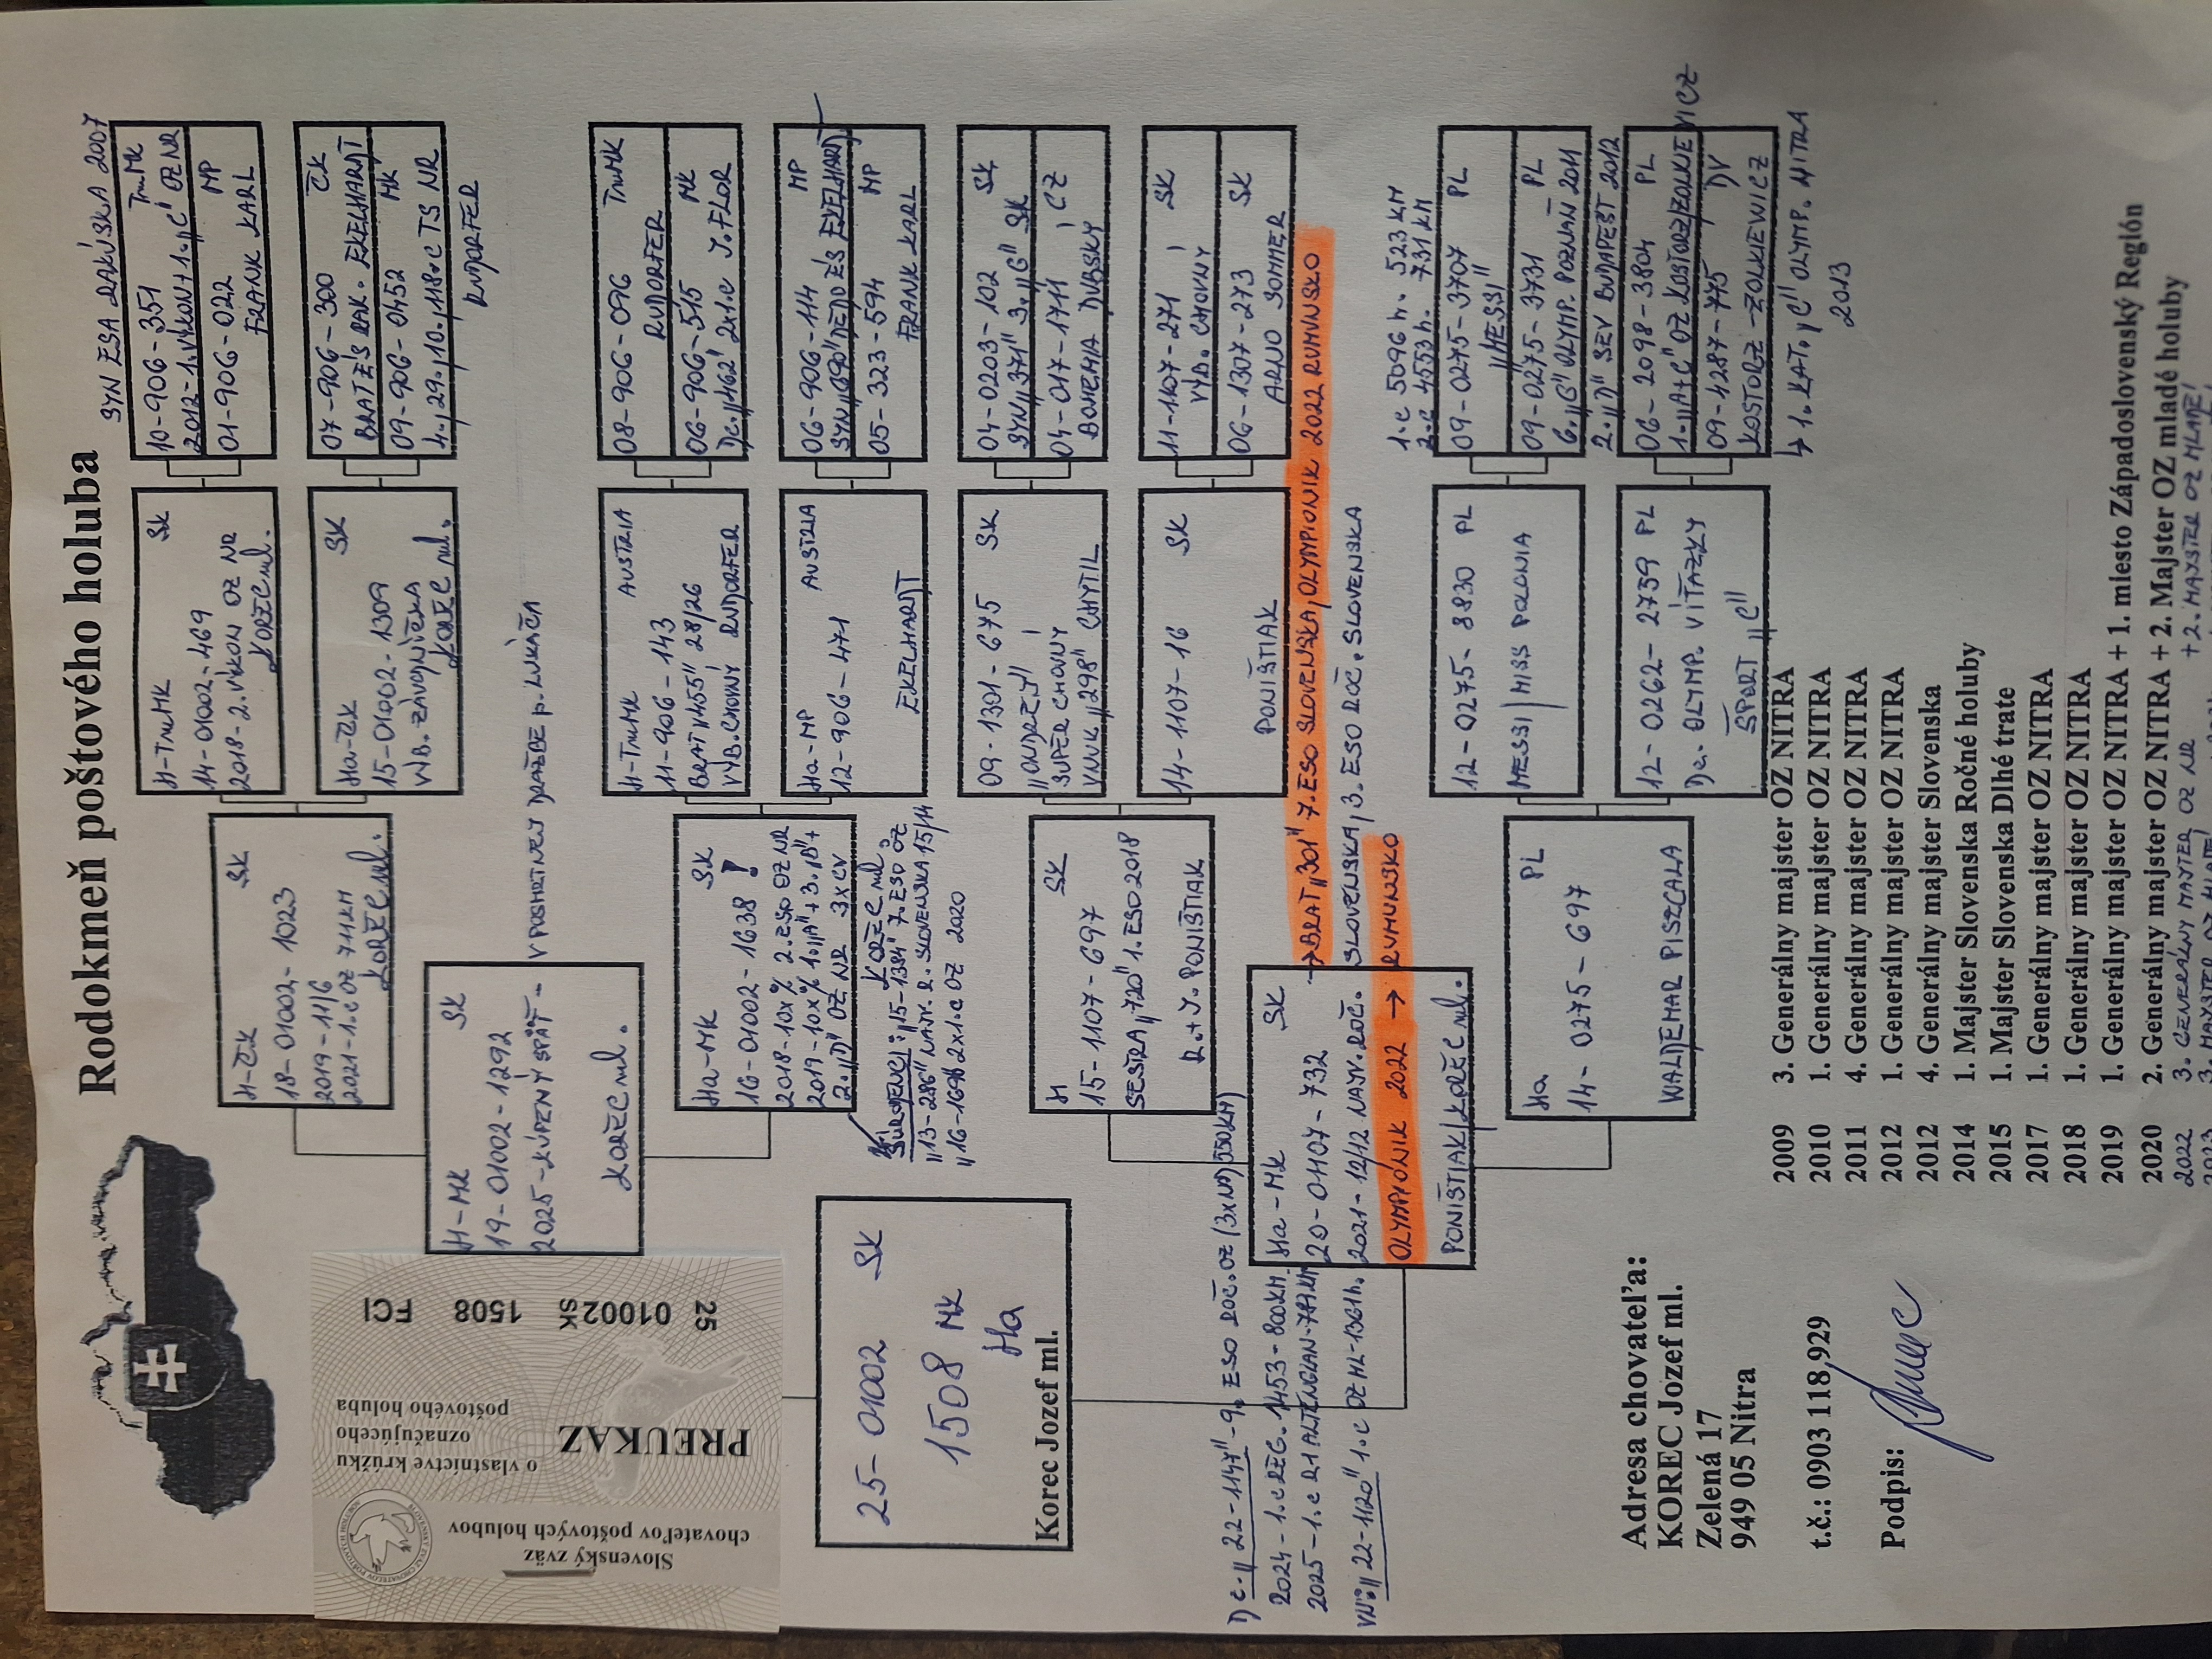 Rodokmeň poštového holuba
Slovenský zväz
chovateľov poštových holubov
PREUKAZ
o vlastníctve krúžku
označujúceho
poštového holuba
25 01002SK 1508 FCI
25-01002 SK
1508 MK
Ha
Korec Jozef ml.
H-MK SK
19-01002-1292
2025-KÚPENÝ SPÄŤ - V POSMRTNEJ DRAŽBE p. LUKÁČA
KOREC ml.
H-ČK SK
18-01002-1023
2019-11/6
2021-1.c OZ 711KM
KOREC ml.
H-TmMK SK
14-01002-469
2018-2.VÝKON OZ NR
KOREC ml.
Ha-ČK SK
15-01002-1309
VÝB. ZÁVODNÍČKA
KOREC ml.
SYN ESA RAKÚSKA 2007
10-906-351 TmMK
2012-1.VÝKON+1."C" OZ NR
01-906-022 MP
FRANK KARL
07-906-300 ČK
BRAT ZS RAK. EKELHARDT
09-906-0452 MK
4., 29., 10., 118.c TS NR
RUDORFER
Ha-MK SK
16-01002-1638 !
2018-10x% 2.ESO OZ NR
2019-10x% 1."A"+3."B"+
2."D" OZ NR 3xCV
KOREC ml.
SÚRODENCI: "15-1384" 7.ESO OZ
"13-286" NAJV. R. SLOVENSKA 15/14
"16-1698" 2x1.c OZ 2020
H-TmMK AUSTRIA
11-906-143
BRAT "455" 28/26
VYB. CHOVNÝ RUDORFER
Ha-MP AUSTRIA
12-906-471
EKELHARDT
08-906-096 TmMK
RUDORFER
06-906-515 MK
Dc. "462" 2x1.c J.FLOR
06-906-114 MP
SYN "090" DEDO ES EKELHARDT
05-323-594 MP
FRANK KARL
H SK
15-1107-697
SESTRA "720" 1.ESO 2018
R.+J. PONIŠTIAK
09-1301-675 SK
"ONDREJ"
SUPER CHOVNÝ
VNUK "298" CHYTIL
14-1107-16 SK
PONIŠTIAK
04-0203-102 SK
SYN "371" 3."G" SK
04-017-1711 CZ
BOHEMIA DUBSKÝ
11-1107-271 SK
VYB. CHOVNÝ
06-1307-273 SK
ARNO SOMMER
Ha-MK SK
20-01107-732
2021-12/12 NAJV. ROČ. SLOVENSKA, 3. ESO ROČ. SLOVENSKA
OLYMPIONIK 2022 → RUMUNSKO
PONIŠTIAK/KOREC ml.
→ BRAT "301" 7.ESO SLOVENSKA, OLYMPIONIK 2022 RUMUNSKO
Dc. "22-1147" - 9. ESO ROČ. OZ (3xND) 550KM)
2024-1.c REG. 1453-800KM.
2025-1.c R1 ALTENGLAN-781KM
VN: "22-1120" 1.c OZ ML-1361h.
Ha PL
14-0275-697
WALDEMAR PISZCALA
12-0275-8830 PL
MESSI/MISS POLONIA
12-0262-2739 PL
Dc. OLYMP. VÍŤAZKY
ŠPORT "C"
1.c 5096 h. 523 KM
2.c 4553 h. 731 KM
09-0275-3707 PL
"MESSI"
09-0275-3731 PL
6."G" OLYMP. POZNAŇ 2011
2."D" SEV BUDAPEST 2012
06-2098-3804 PL
1."A+C" OZ KOSTORZ/ZOLKIEWICZ
09-4287-775 DV
KOSTORZ-ZOLKIEWICZ
↳ 1.KAT."C" OLYMP. NITRA
2013
Adresa chovateľa:
KOREC Jozef ml.
Zelená 17
949 05 Nitra
t.č.: 0903 118,929
Podpis:
2009 3. Generálny majster OZ NITRA
2010 1. Generálny majster OZ NITRA
2011 4. Generálny majster OZ NITRA
2012 1. Generálny majster OZ NITRA
2012 4. Generálny majster Slovenska
2014 1. Majster Slovenska Ročné holuby
2015 1. Majster Slovenska Dlhé trate
2017 1. Generálny majster OZ NITRA
2018 1. Generálny majster OZ NITRA
2019 1. Generálny majster OZ NITRA + 1. miesto Západoslovenský Región
2020 2. Generálny majster OZ NITRA + 2. Majster OZ mladé holuby
2022 3. GENERÁLNY MAJSTER OZ NR + 2. MAJSTER OZ MLADÉ